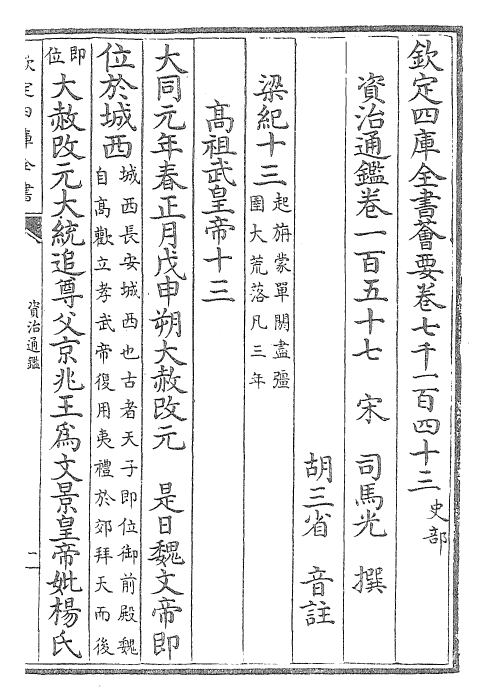 欽定四庫全書薈要卷七千一百四十三 史部
資治通鑑卷一百五十七 宋 司馬光 撰
胡三省 音註
梁紀十三 起旃蒙單閼盡彊
圉大荒落凡三年
髙祖武皇帝十三
大同元年春正月戊申朔大赦改元 是日魏文帝即
位於城西 城西長安城西也古者天子即位御前殿魏
自髙歡立孝武帝復用夷禮於郊拜天而後
即位
大赦改元大統追尊父京兆王為文景皇帝妣楊氏
欽定四庫全書
資治通鑑
一